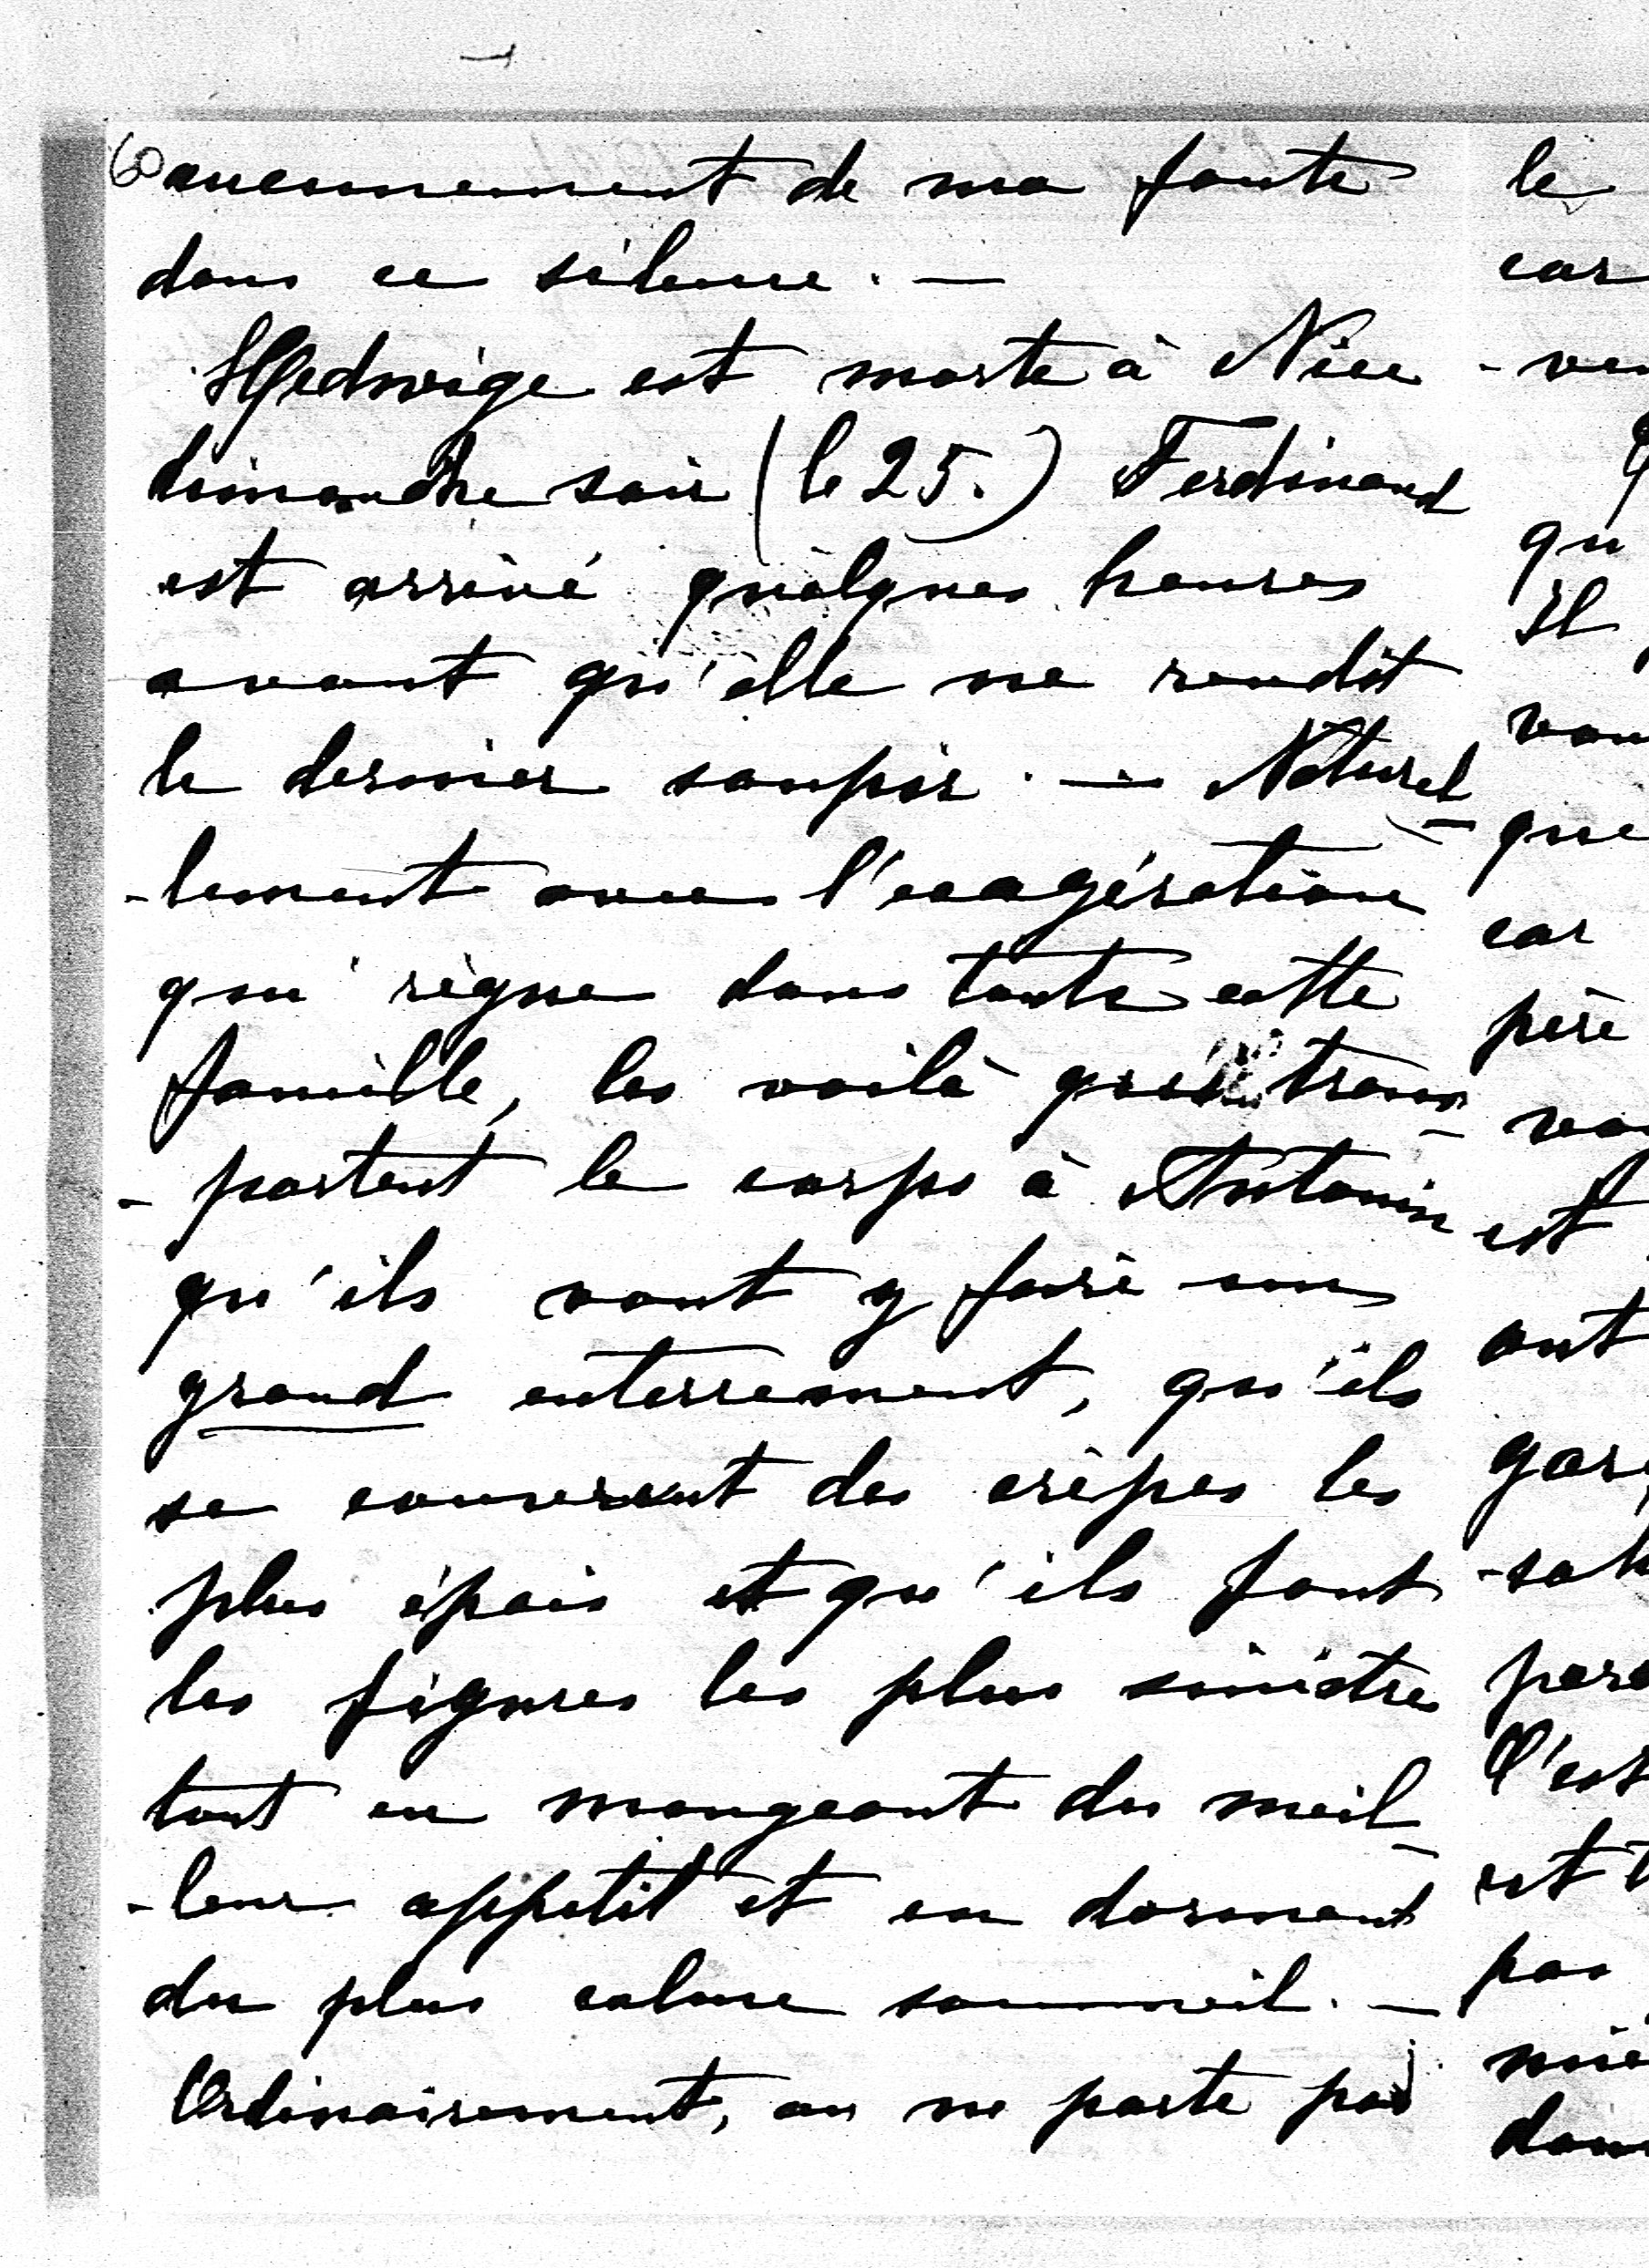 60
aucunement de ma faute
dans ce silence. —
Hedwige est morte à Nice
dimanche soir (le 25.) Ferdinand
est arrivé quelques heures
avant qu'elle ne rendit
le dernier soupir. — Naturel
-lement avec l'exagération
qui règne dans toute cette
famille, les voilà qui trans-
-portent le corps à Antonin
qu'ils vont y faire un
grand enterrement, qu'ils
se couvrent des crêpes les
plus épais et qu'ils font
les figures les plus sinistres
tout en mangeant du meil-
-leur appetit et en dormant
du plus calme sommeil. —
Ordinairement, on ne porte pas
le
car
-ve
qu
Il
vou
que
car
père
est
ont
gar
pere
C'est
pas